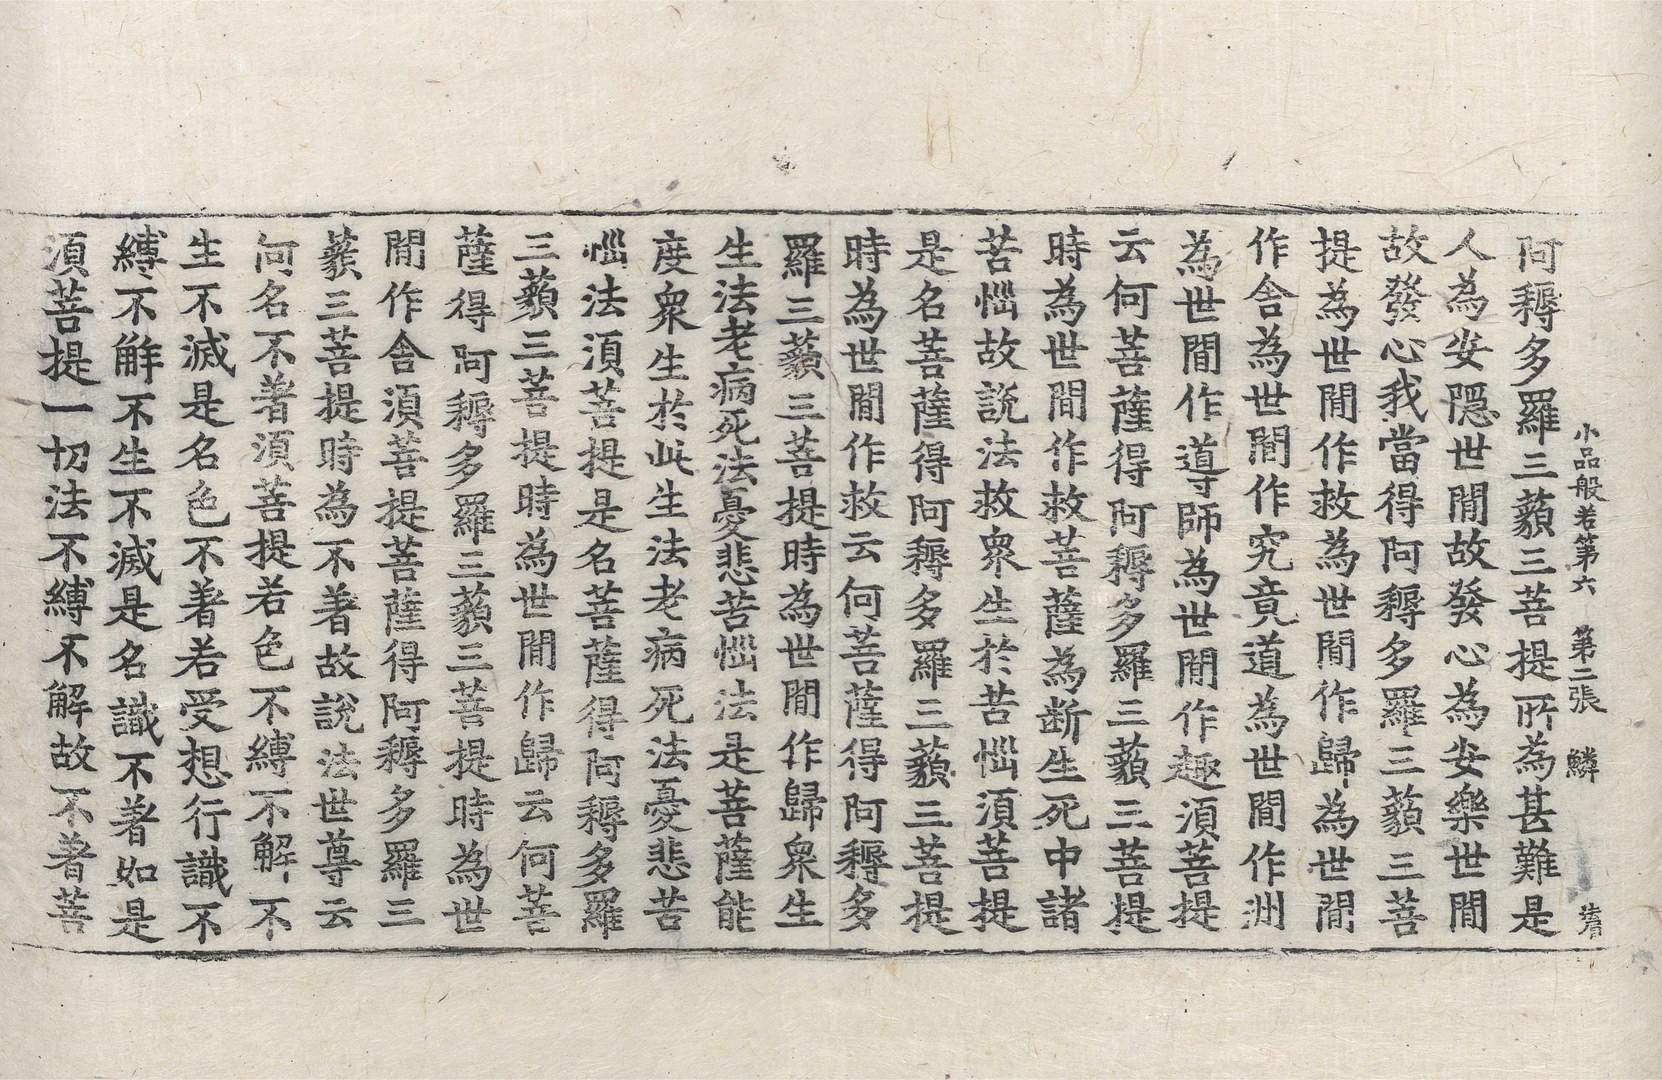 小品般若第六 第二張 鱗
阿耨多羅三藐三菩提所為甚難是
人為安隱世閒故發心為安樂世閒
故發心我當得阿耨多羅三藐三菩
提為世閒作救為世閒作歸為世閒
作舍為世閒作究竟道為世閒作洲
為世閒作導師為世閒作趣須菩提
云何菩薩得阿耨多羅三藐三菩提
時為世閒作救菩薩為断生死中諸
苦惱故說法救衆生於苦惱須菩提
是名菩薩得阿耨多羅三藐三菩提
時為世閒作救云何菩薩得阿耨多
羅三藐三菩提時為世閒作歸衆生
生法老病死法憂悲苦惱法是菩薩能
度衆生於此生法老病死法憂悲苦
惱法須菩提是名菩薩得阿耨多羅
三藐三菩提時為世閒作歸云何菩
薩得阿耨多羅三藐三菩提時為世
閒作舍須菩提菩薩得阿耨多羅三
藐三菩提時為不著故說法世尊云
何名不著須菩提若色不縛不解不
生不滅是名色不著若受想行識不
縛不解不生不滅是名識不著如是
須菩提一切法不縛不解故不著菩